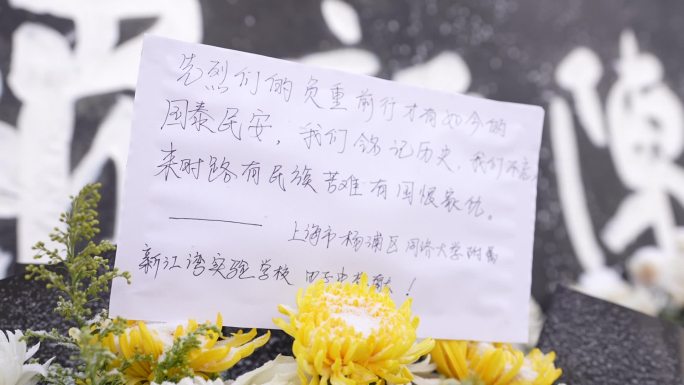 先烈们的负重前行才有如今的
国泰民安，我们铭记历史，我们不忘
来时路有民族苦难有国恨家仇。
—— 上海市杨浦区同济大学附属
新江湾实验学校